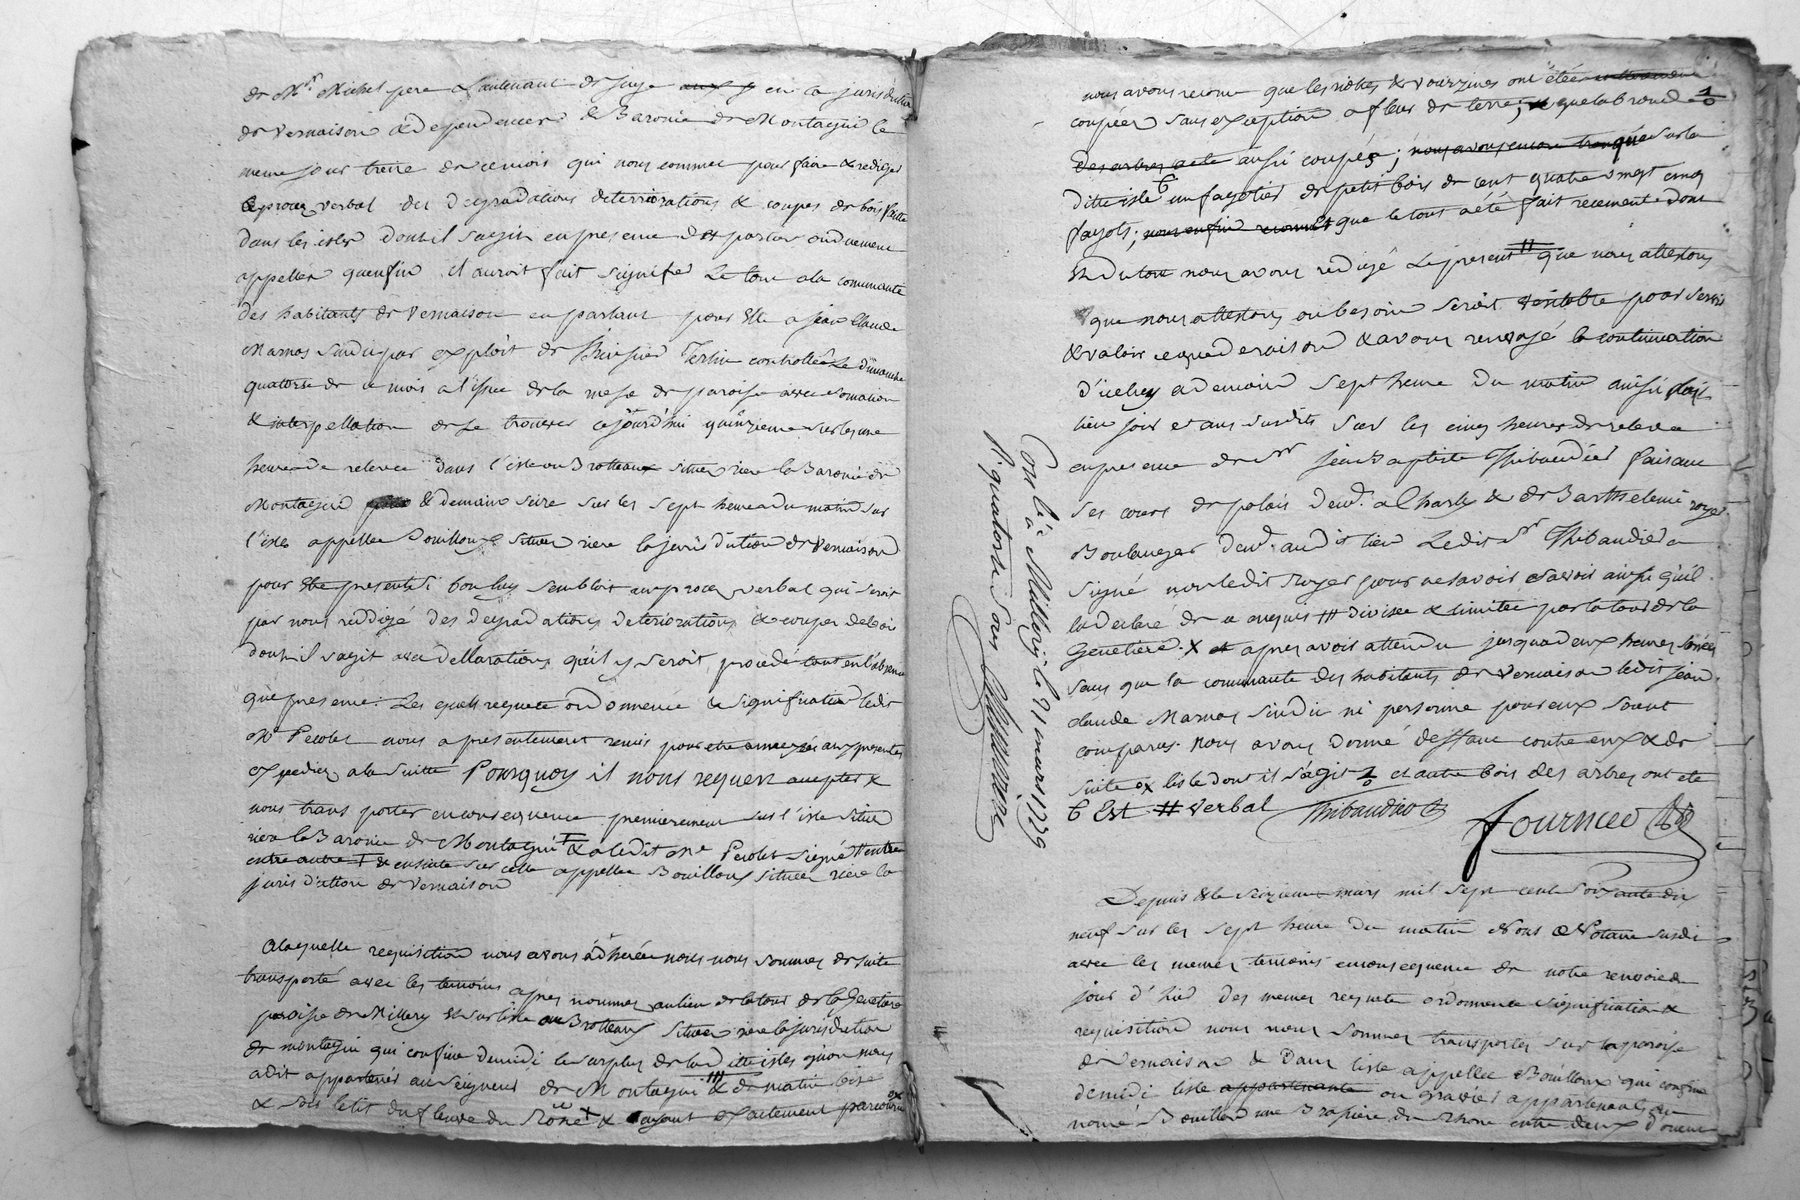 de Mr Michel pere Lieutenant de juge en la jurisdiction
de Vernaison & dependences & Baronie de Montagni le
meme jour treize de ce mois qui nous commet pour faire & rediger
le proces verbal des degradations deteriorations & coupes de bois faitte
dans les isles dont il sagit en presence des parties ou duement
appellées quenfin il auroit fait signifié le tout a la comunauté
des habitants de Vernaison en parlant pour Elle a jean Claude
Marnas sindic par exploit de controllé le dimanche
quatorze de ce mois a l'issue de la messe de paroisse avec somation
& interpellation de se trouver cejourd'hui quinzieme sur les une
heure de relevée dans l'isle ou Brotteaux située riere la Baronie de
Montagni & demain seize sur les sept heures du matin sur
l'isle appellée Bouilloux située riere la jurisdiction de Vernaison
pour Etre presents si bon luy sembloit au proces verbal qui seroit
par nous redigé des degradations deteriorations & coupes de bois
dont il sagit avec declarations qu'il y seroit procedé tant en l'absence
que presence. Les quels requete ordonnence & signification ledit
Mr Pecolet nous a presentement remis pour etre annexés aux presentes
expediez a la suitte Pourquoy il nous requert accepter &
nous transporter en consequence premierement sur l'isle située
riere la Baronie de Montagni & a ledit Me Pecolet signé
entre autre & ensuite sur celle appellée Bouilloux située riere la
jurisdiction de Vernaison
A laquelle requisition nous avons adhérée nous nous sommes de suite
transporté avec les temoins apres nommes au lieu de la tour de la Genetiere
paroisse de Millery & sur l'isle ou Brotteaux située riere la jurisdiction
de montagni qui confine de midi le surplus de la ditte isle qu'on nous
a dit appartenir au seigneur de Montagni & de matin bise
& soir le lit du fleuve du Rône & ayant exactement parcourue
nous avons reconu que les niottes & vourzines ont été entierement
coupées sans exception a fleur de terre; & que la branche
des arbres a ete aussi coupée; nous avons encore trouvé sur la
ditte isle un fagotier de petit bois de cent quatre vingt cinq
fagots; nous enfin reconnu que le tout a été fait recement dont
& du tout nous avons redigé le present que nous attestons
que nous attestons ou besoin seroit veritable pour servir
& valoir ce que de raison & avons renvoyé la continuation
d'icelluy a demain sept heure du matin ainsi fait
lieu jour et ans susdits sur les cinq heures de relevée
en presence de Sr Jean Baptiste Thibaudier faisant
ses cours de palais demt. a Charly & de Barthelemi royer
Boulanger demt. audit lieu Ledit Sr Thibaudier a
signé non ledit Royer pour ne savoir ainsi qu'il
la declaré de ce enquis divisée & limitée par la tour de la
Genetiere. X et apres avoir attendu jusqua deux heures sonnées
sans que la communauté des habitants de Vernaison ledit Jean
claude Marnas sindic ni personne pour eux soient
comparus. Nous avons donné deffaut contre eux & de
suite ex l'isle dont il s'agit et autre bois des arbres ont ete
Est # verbal Thibaudier
fournee
Con.lé a Millery le 21 mars 1779
R. quatorze sous
Depuis & le seizieme mars mil sept cent soixante dix
neuf sur les sept heure du matin Nous Notaire susdit
avec les memes temoins en consequence de notre renvoie du
jour d'hier des memes requete ordonnence signification &
requisition nous nous sommes transportes sur la paroisse
de Vernaison & dans l'isle appellée Bouilloux qui confine
de midi l'isle appartenante ou gravier appartenant au
nomé Bouillod une Brassiere du Rhone entre deux d'orient